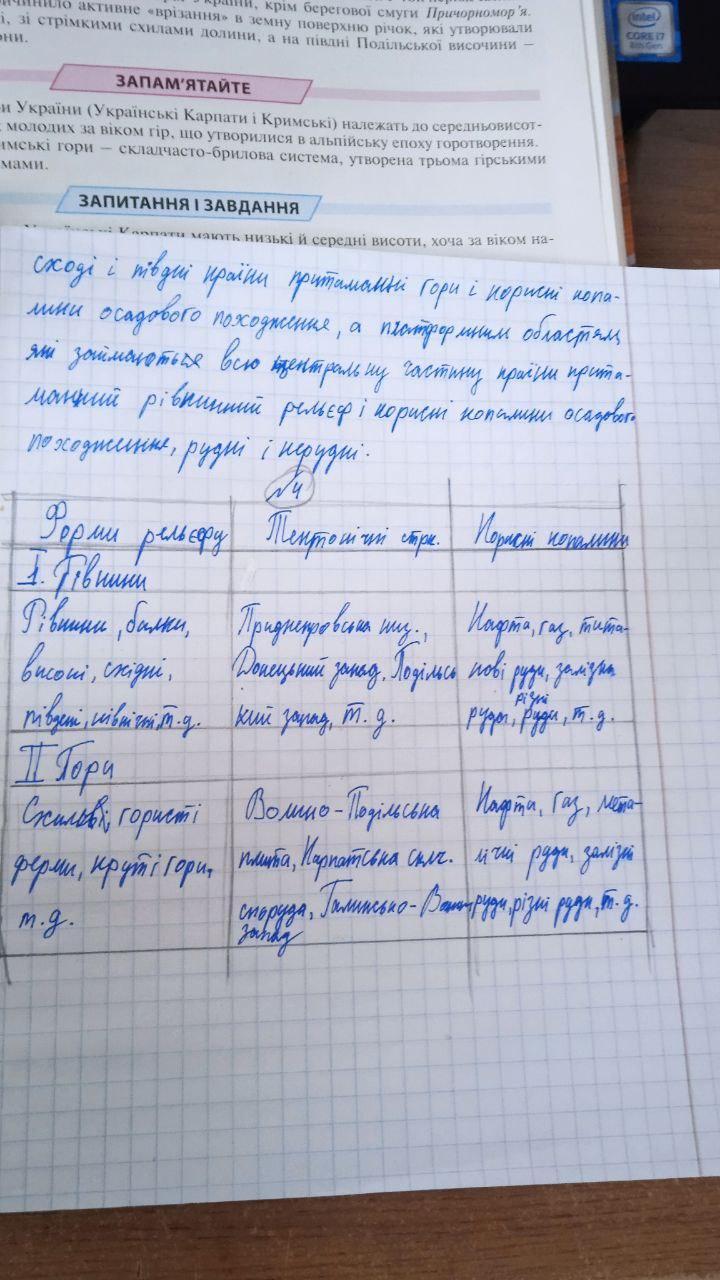 ичинило активне «врізання» в земну поверхню річок, які утворювали
і, зі стрімкими схилами долини, а на півдні Подільської височини –
они.
України, крім берегової смуги Причорномор’я.
intel
CORE i7
8th Gen
ЗАПАМ’ЯТАЙТЕ
и України (Українські Карпати і Кримські) належать до середньовисот-
х молодих за віком гір, що утворилися в альпійську епоху горотворення.
имські гори – складчасто-брилова система, утворена трьома гірськими
мами.
ЗАПИТАННЯ І ЗАВДАННЯ
Карпати мають низькі й середні висоти, хоча за віком на-
сході і півдні країни притаманні гори і корисні копа-
лини осадового походження, а платформним областям
які займаються всю центральну частину країни прита-
манний рівнинний рельєф і корисні копалини осадового
походження, рудні і нерудні.
№4
Форми рельєфу Тектонічні стрк. Корисні копалини
I. Рівнини
Рівнини, балки, Придніпровська низ., Нафта, газ, тита-
високі, східні, Донецький запад, Подільсь нові руди, залізна
південі, північні, т.д. кий запад, т. д. руды, різні руди, т. д.
II Гори
Схилові, гористі Волино-Подільська Нафта, газ, мета-
ферми, круті гори, плита, Карпатська склч. лічні руди, залізні
т.д. споруда, Галицько-Волин руди, різні руди, т. д.
запад